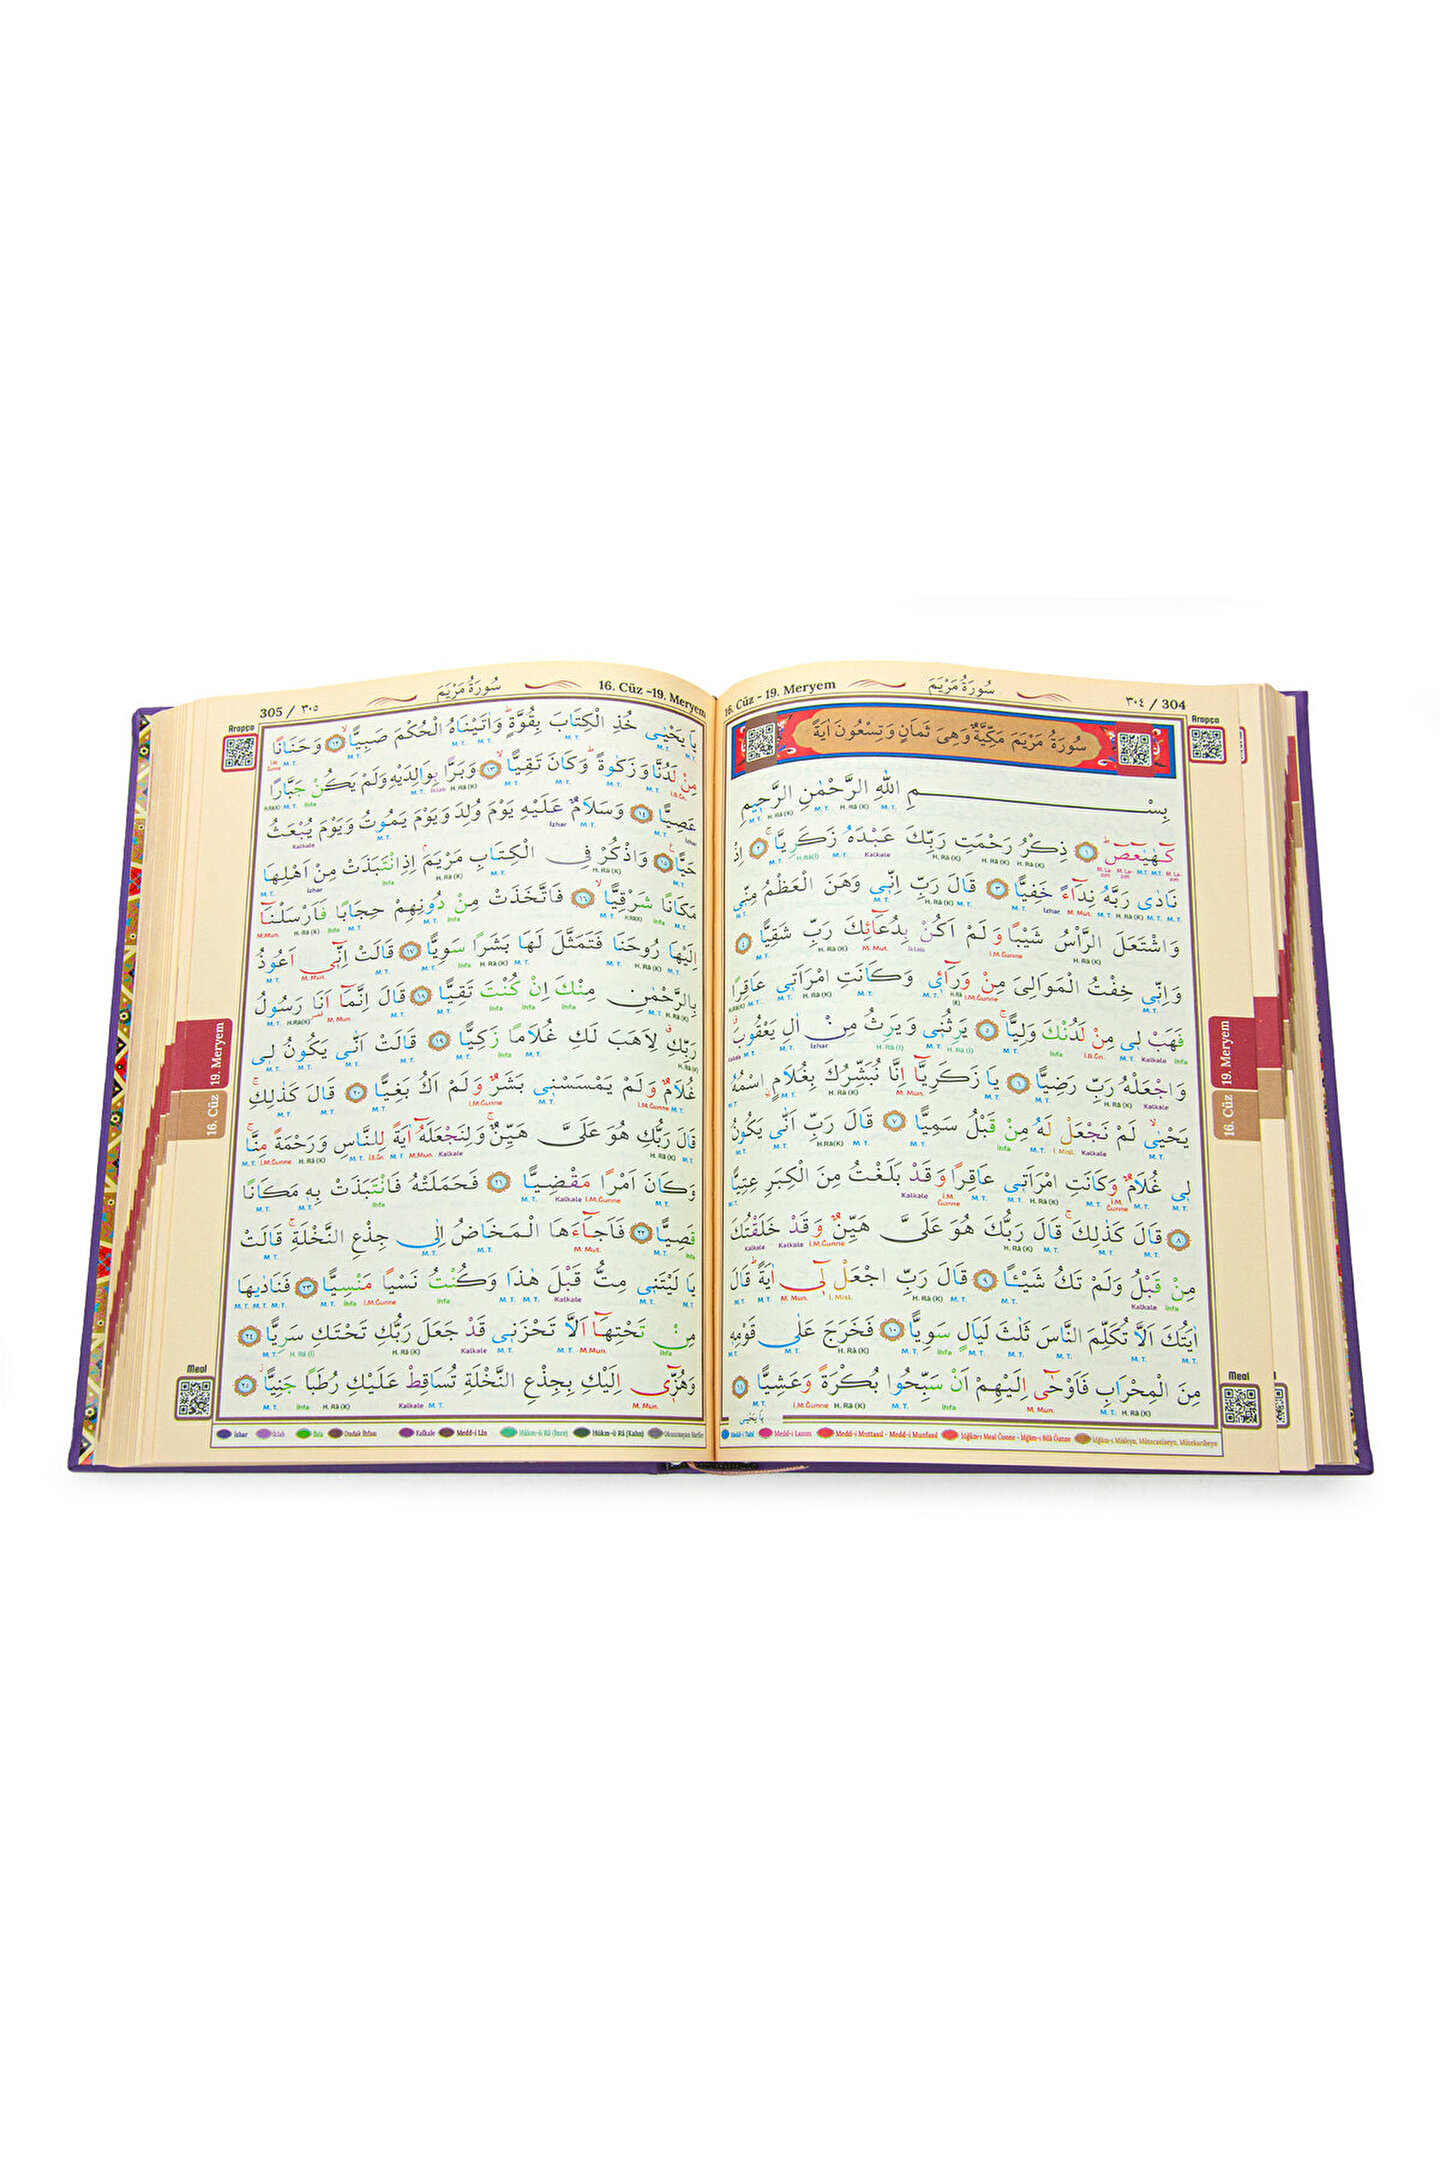 304 / ٣٠٤
سُورَةُ مَرْيَمَ
16. Cüz - 19. Meryem
سُورَةُ مَرْيَمَ مَكِّيَّةٌ وَهِىَ ثَمَانٍ وَتِسْعُونَ اٰيَةً
بِسْمِ اللّٰهِ الرَّحْمٰنِ الرَّح۪يمِ
كٓهٰيٰعٓصٓ ١ ذِكْرُ رَحْمَتِ رَبِّكَ عَبْدَهُ زَكَرِيَّا ٢ اِذْ
نَادٰى رَبَّهُ نِدَٓاءً خَفِيًّا ٣ قَالَ رَبِّ اِنّ۪ى وَهَنَ الْعَظْمُ مِنّ۪ى
وَاشْتَعَلَ الرَّأْسُ شَيْبًا وَلَمْ اَكُنْ بِدُعَٓائِكَ رَبِّ شَقِيًّا ٤
وَاِنّ۪ى خِفْتُ الْمَوَالِىَ مِنْ وَرَٓاء۪ى وَكَانَتِ امْرَاَت۪ى عَاقِرًا
فَهَبْ ل۪ى مِنْ لَدُنْكَ وَلِيًّا ٥ يَرِثُن۪ى وَيَرِثُ مِنْ اٰلِ يَعْقُوبَ
وَاجْعَلْهُ رَبِّ رَضِيًّا ٦ يَا زَكَرِيَّٓا اِنَّا نُبَشِّرُكَ بِغُلَامٍ اسْمُهُ
يَحْيٰى لَمْ نَجْعَلْ لَهُ مِنْ قَبْلُ سَمِيًّا ٧ قَالَ رَبِّ اَنّٰى يَكُونُ
ل۪ى غُلَامٌ وَكَانَتِ امْرَاَت۪ى عَاقِرًا وَقَدْ بَلَغْتُ مِنَ الْكِبَرِ عِتِيًّا
٨ قَالَ كَذٰلِكَ قَالَ رَبُّكَ هُوَ عَلَىَّ هَيِّنٌ وَقَدْ خَلَقْتُكَ
مِنْ قَبْلُ وَلَمْ تَكُ شَيْـًٔا ٩ قَالَ رَبِّ اجْعَلْ ل۪ٓى اٰيَةً قَالَ
اٰيَتُكَ اَلَّا تُكَلِّمَ النَّاسَ ثَلٰثَ لَيَالٍ سَوِيًّا ١٠ فَخَرَجَ عَلٰى قَوْمِه۪
مِنَ الْمِحْرَابِ فَاَوْحٰٓى اِلَيْهِمْ اَنْ سَبِّحُوا بُكْرَةً وَعَشِيًّا ١١
يَا يَحْيٰى
Medd-i Tabî Medd-i Lazım Medd-i Muttasıl - Medd-i Munfasıl İdğâm-ı Meal Ğunne - İdğâm-ı Bilâ Ğunne İdğâm-ı Misleyn, Mütecaniseyn, Mütekaribeyn
Arapça
19. Meryem
16. Cüz
Meal
16. Cüz -19. Meryem
سُورَةُ مَرْيَمَ
305 / ٣٠٥
يَا يَحْيٰى خُذِ الْكِتَابَ بِقُوَّةٍ وَاٰتَيْنَاهُ الْحُكْمَ صَبِيًّا ١٢ وَحَنَانًا
مِنْ لَدُنَّا وَزَكٰوةً وَكَانَ تَقِيًّا ١٣ وَبَرًّا بِوَالِدَيْهِ وَلَمْ يَكُنْ جَبَّارًا
عَصِيًّا ١٤ وَسَلَامٌ عَلَيْهِ يَوْمَ وُلِدَ وَيَوْمَ يَمُوتُ وَيَوْمَ يُبْعَثُ
حَيًّا ١٥ وَاذْكُرْ فِى الْكِتَابِ مَرْيَمَ اِذِ انْتَبَذَتْ مِنْ اَهْلِهَا
مَكَانًا شَرْقِيًّا ١٦ فَاتَّخَذَتْ مِنْ دُونِهِمْ حِجَابًا فَاَرْسَلْنَٓا
اِلَيْهَا رُوحَنَا فَتَمَثَّلَ لَهَا بَشَرًا سَوِيًّا ١٧ قَالَتْ اِنّ۪ٓى اَعُوذُ
بِالرَّحْمٰنِ مِنْكَ اِنْ كُنْتَ تَقِيًّا ١٨ قَالَ اِنَّمَٓا اَنَا رَسُولُ
رَبِّكِ لِاَهَبَ لَكِ غُلَامًا زَكِيًّا ١٩ قَالَتْ اَنّٰى يَكُونُ ل۪ى
غُلَامٌ وَلَمْ يَمْسَسْن۪ى بَشَرٌ وَلَمْ اَكُ بَغِيًّا ٢٠ قَالَ كَذٰلِكِ
قَالَ رَبُّكِ هُوَ عَلَىَّ هَيِّنٌ وَلِنَجْعَلَهُٓ اٰيَةً لِلنَّاسِ وَرَحْمَةً مِنَّا
وَكَانَ اَمْرًا مَقْضِيًّا ٢١ فَحَمَلَتْهُ فَانْتَبَذَتْ بِه۪ مَكَانًا
قَصِيًّا ٢٢ فَاَجَٓاءَهَا الْمَخَاضُ اِلٰى جِذْعِ النَّخْلَةِ قَالَتْ
يَا لَيْتَن۪ى مِتُّ قَبْلَ هٰذَا وَكُنْتُ نَسْيًا مَنْسِيًّا ٢٣ فَنَادٰيهَا
مِنْ تَحْتِهَٓا اَلَّا تَحْزَن۪ى قَدْ جَعَلَ رَبُّكِ تَحْتَكِ سَرِيًّا ٢٤
وَهُزّ۪ٓى اِلَيْكِ بِجِذْعِ النَّخْلَةِ تُسَاقِطْ عَلَيْكِ رُطَبًا جَنِيًّا ٢٥
İzhar İklab İhfa Dudak İhfası Kalkale Medd-i Lin Hükm-ü Râ (İnce) Hükm-ü Râ (Kalın) Okunmayan Harfler
Arapça
19. Meryem
16. Cüz
Meal